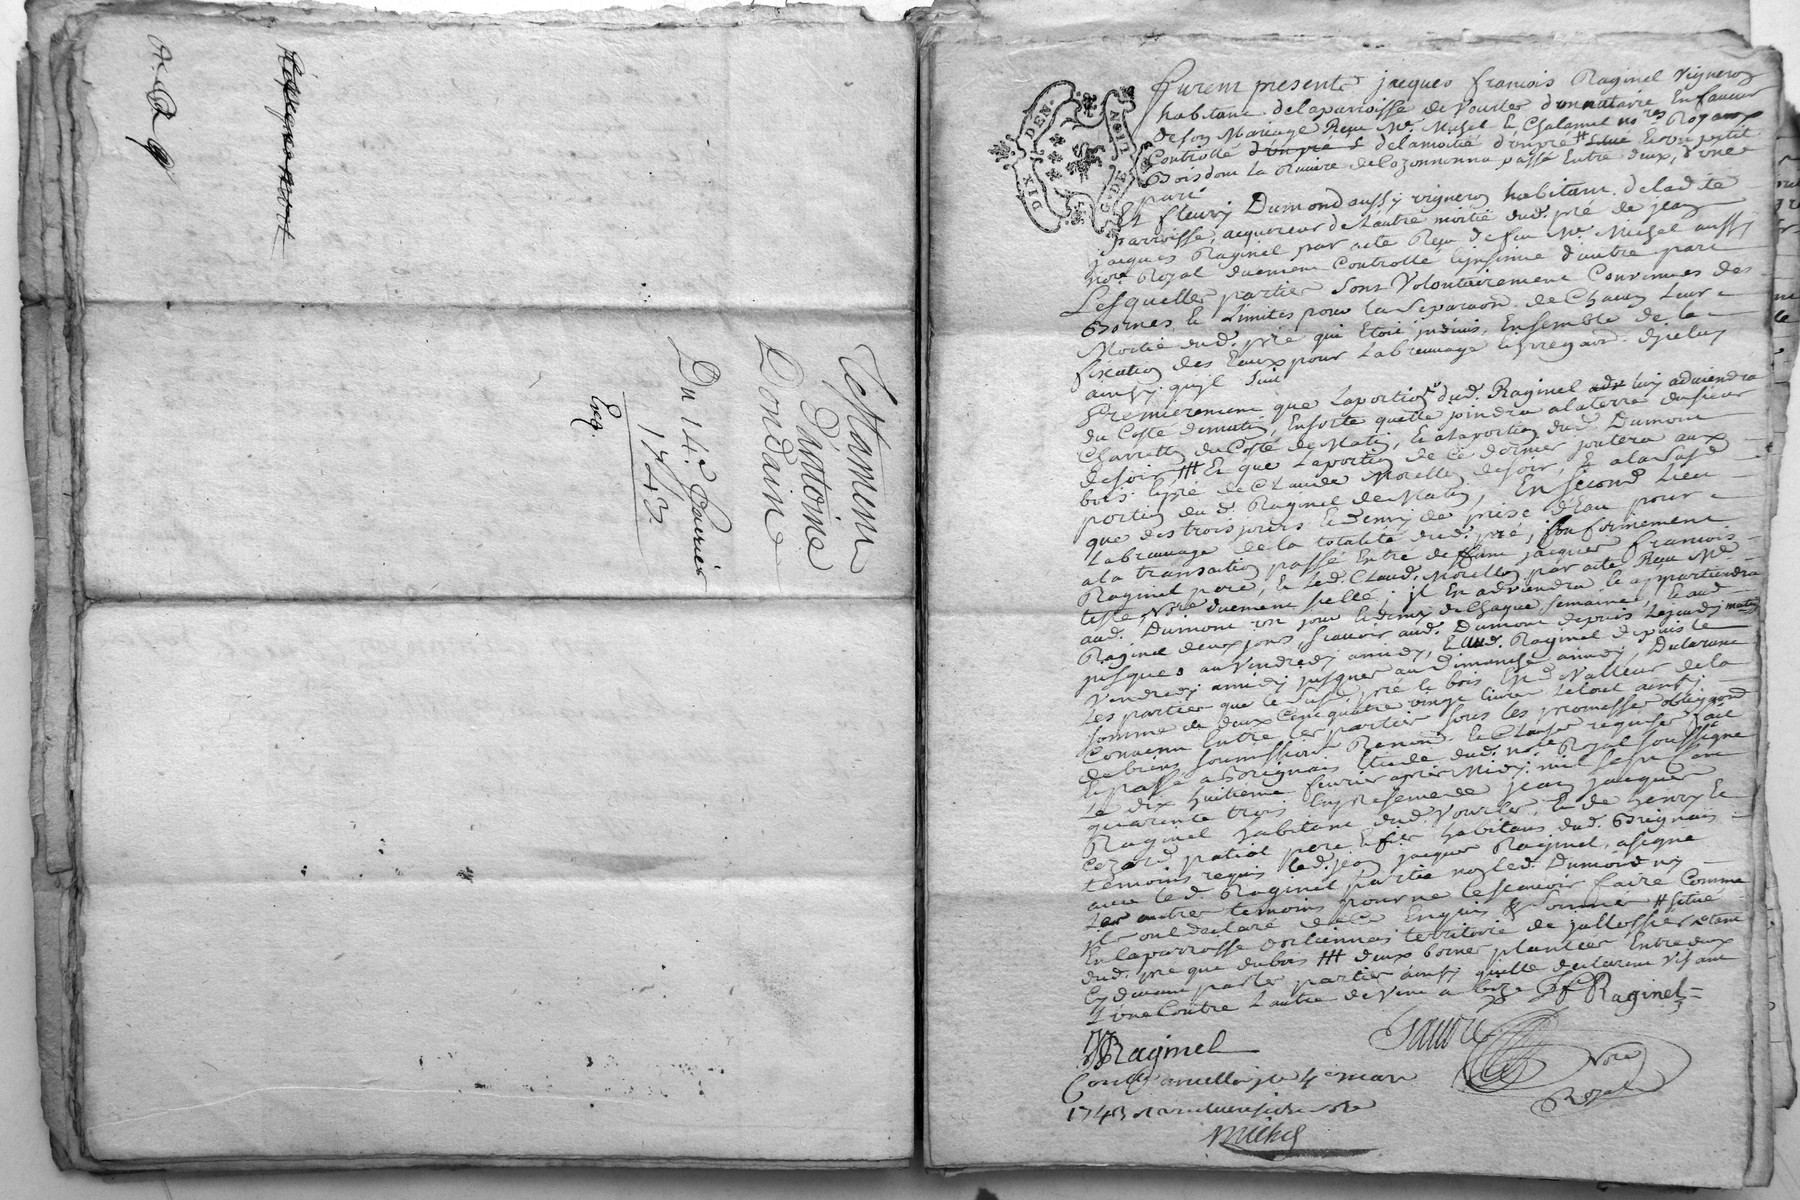 Testament
D'antoine
Dondaine
Du 14.e Janvier
1743
Exeq.
DIX DEN.
G. DE LION
furent presents jacques francois Raginel vigneron
habitant de la parroisse de Vourles donnataire En faveur
de son Mariage Reçu Me. Michel & Chalamel nores Royaux
Controllé d'un pré & de la moitié d'un pré # situé & d'un petit
Bois dont la Riviere de passe Entre deux, d'une
part
Et fleury Dumond aussy vigneron habitant de ladite
parroisse, acquereur de Lautre moitié dud. pré de jean
jacques Raginel par acte Reçu de feu Me. Michel aussy
nore Royal duement Controllé & insinué d'autre part
Lesquelles parties sont Volontairement Convenues des
Bornes & Limites pour la Separaon de Chacun Leur
Moitié dud. pré qui Etoit indivis, Ensemble de la
fixation des Eaux pour Labreuvage
ainsy qu'il suit
Premierement que La portion dud. Raginel luy adviendra
du Costé de matin, Ensorte quelle joindra a la terre du sieur
Charretton du Costé de Matin, & a la portion dud. Dumont
de soir # Et que La portion de ce dernier joutera aux
bois & pré de Claude Morellon de soir, & a la susd
portion dud. Raginel de Matin, En second Lieu
que des trois jours & demy de prise d'Eau pour
Labreuvage de la totalité dud. pré, Conformement
a la transaction passé Entre deffunt jacques francois
Raginel pere, & led. Claude Morellon par acte Reçu Me
teste Nore duement scellé; il En adviendra & appartiendra
aud. Dumont un jour & demy de Chaque semaine, & aud
Raginel deux jours, scavoir aud. Dumont depuis Le jeudy matin
jusques au Vendredy amidy, & aud. Raginel depuis le
Vendredy amidy jusques au dimanche amidy, Declarant
Les parties que le susd. pré & bois Est de Valleur de la
somme de deux Cent quatre vingt livres Le tout ainsy
Convenu Entre les parties sous les promesses obligaons
de biens soumissions Renonons & Clauses requises fait
& passé a Brignais Etude dud. nore Royal soussigné
Le dix huitieme fevrier apres Midy mil sept Cent
quarente trois En presence de jean jacques
Raginel habitant dud. Vourles, & de henry &
Cezard patiol pere & fils habitans dud. Brignais
temoins requis led. jean jacques Raginel a signé
avec led. Raginel partie non led. Dumond ny
Les autres temoins pour ne le scavoir faire Comme
ils ont declaré de ce Enquis & sommés # situé
En la parroisse d'orlienas territoire de jallossieu Etant
dud. pré que du bois # deux bornes plantées Entre deux
Cy devant par les parties ainsy quelle declarent visant
L'une Contre Lautre de vent a bize JF Raginel
JJ Raginel
favre
Nore
Royal
le 4e mars
1743
Michel